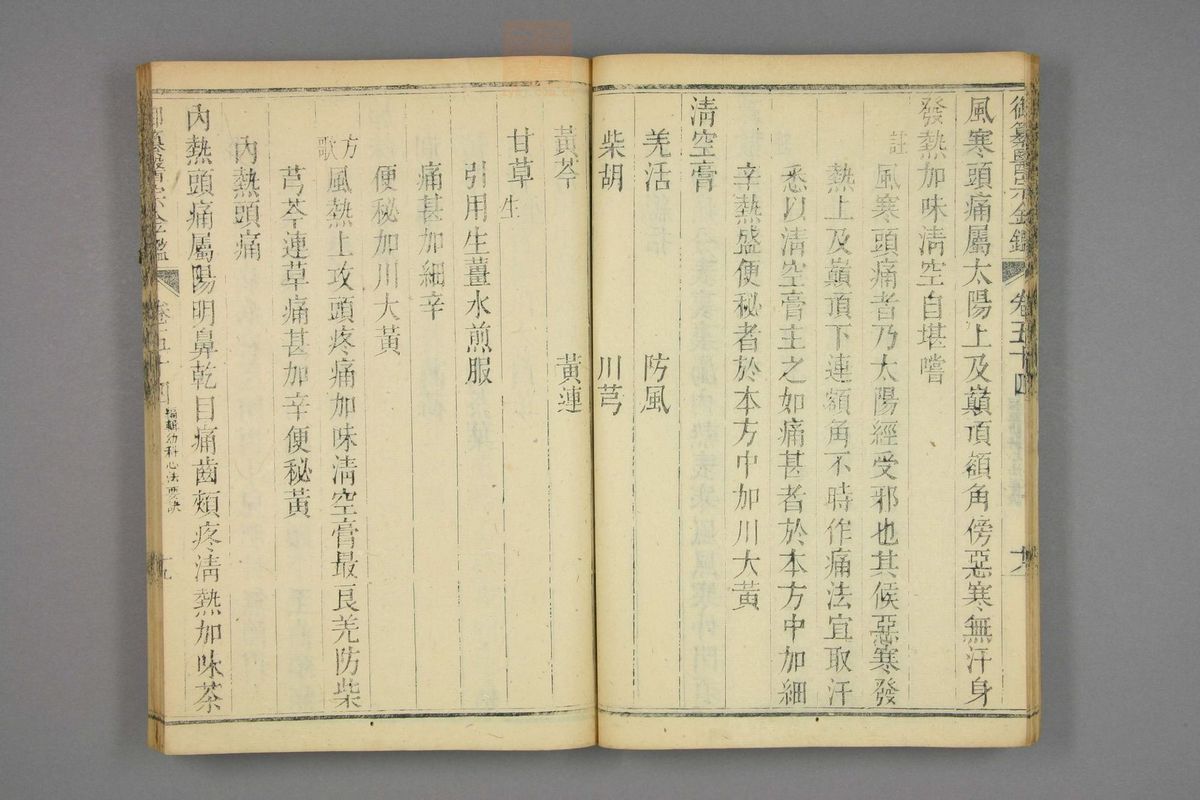 御纂醫宗金鑑 卷五十四
風寒頭痛屬太陽上及巔頂額角傍惡寒無汗身
發熱加味淸空自堪嚐
註風寒頭痛者乃太陽經受邪也其候惡寒發
熱上及巔頂下連額角不時作痛法宜取汗
悉以淸空膏主之如痛甚者於本方中加細
辛熱盛便秘者於本方中加川大黃
淸空膏
羗活 防風
柴胡 川芎
黃芩 黃連
甘草生
引用生薑水煎服
痛甚加細辛
便秘加川大黃
方歌風熱上攻頭疼痛加味淸空膏最良羗防柴
芎芩連草痛甚加辛便秘黃
內熱頭痛
內熱頭痛屬陽明鼻乾目痛齒頰疼淸熱加味茶
御纂醫宗金鑑 卷五十四 編輯幼科心法要訣 十九